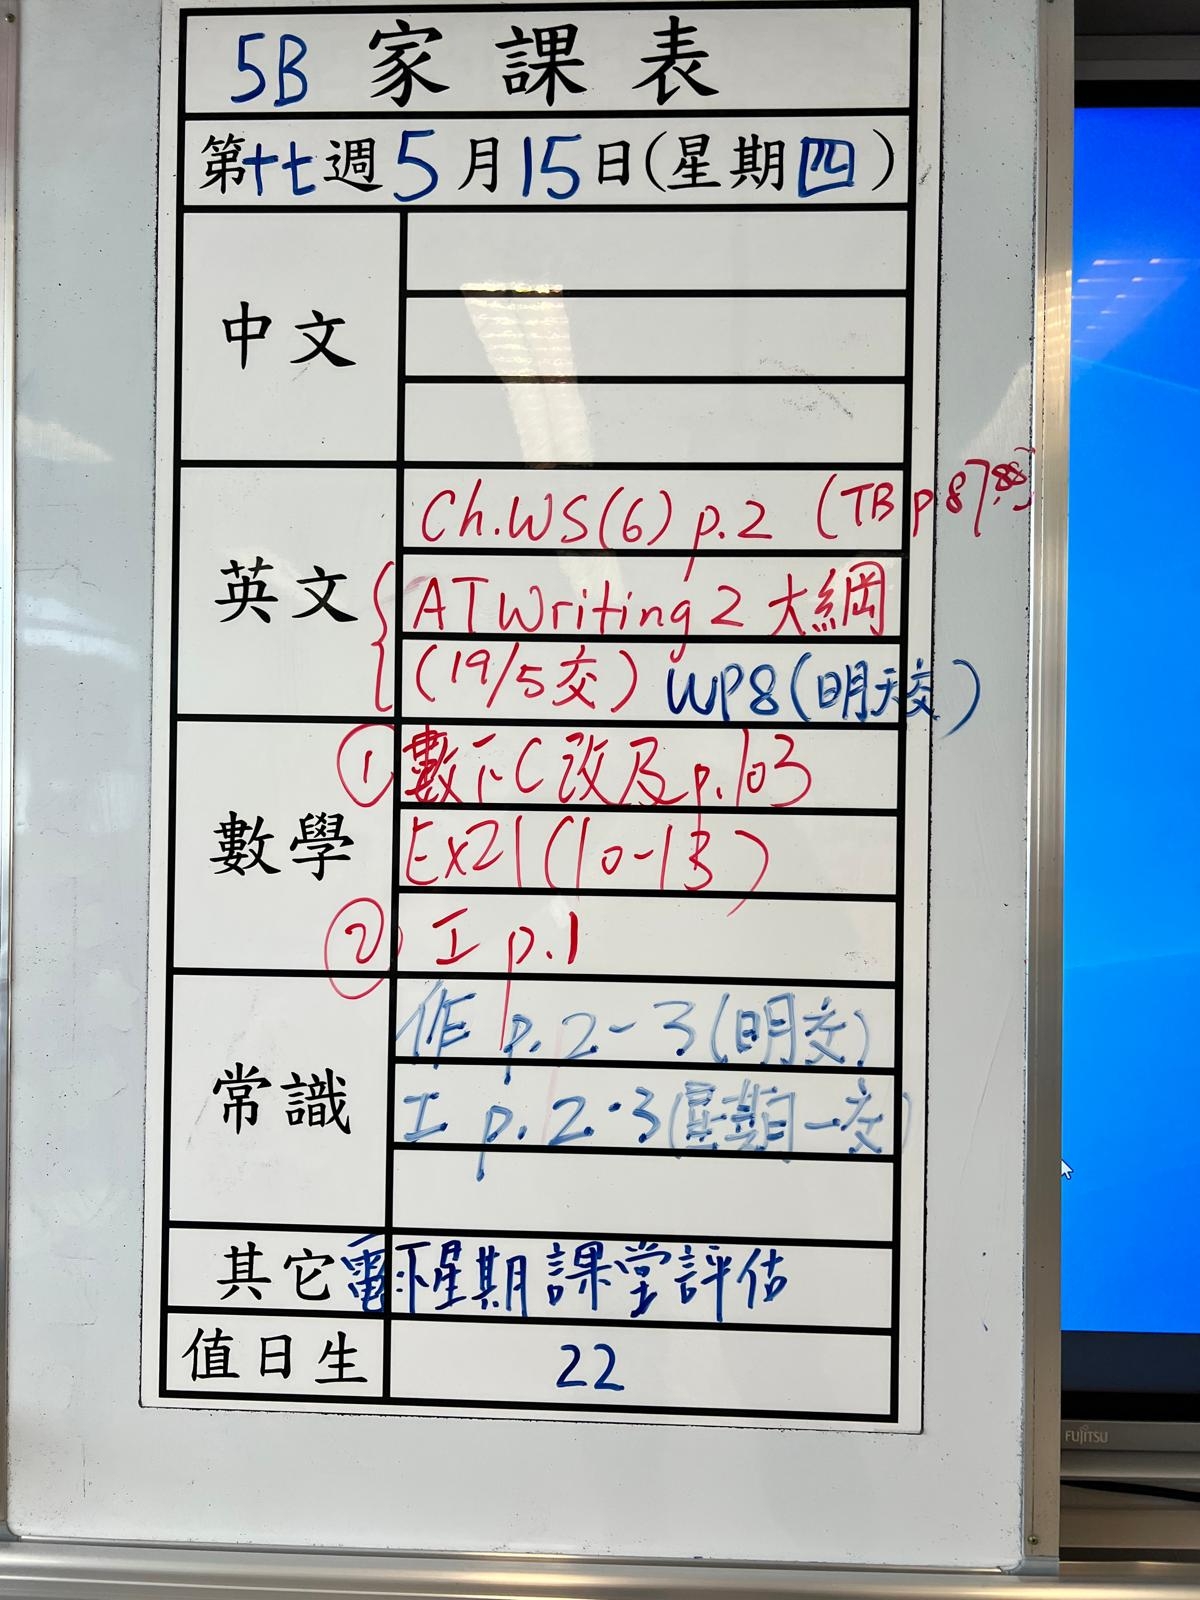 5B 家課表
第十七週5月15日(星期四)
中文
英文
Ch.WS(6) p.2 (TB p87,88)
AT Writing 2 大綱
(19/5交) WP8(明天交)
數學
① 數下C改及p.103
Ex21(10-13)
② 工 p.1
常識
作 p.2-3(明交)
工 p.2.3(星期一交)
其它
電:下星期課堂評估
值日生
22
FUJITSU